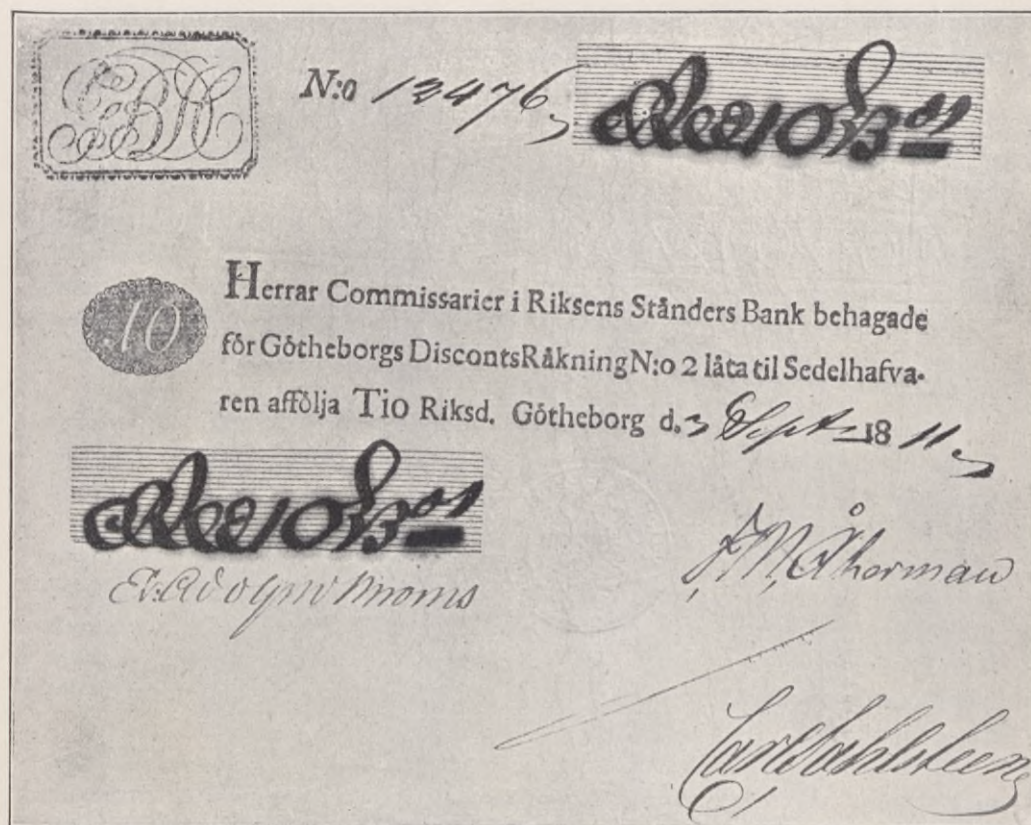 N:o 12476
Herrar Commissarier i Riksens Stånders Bank behagade
för Götheborgs DiscontsRåkning N:o 2 låta til Sedelhafva-
ren affölja Tio Riksd. Götheborg d. 3 Sept. 18 11
10
J. M. Åkerman
Carl Dahlsteen